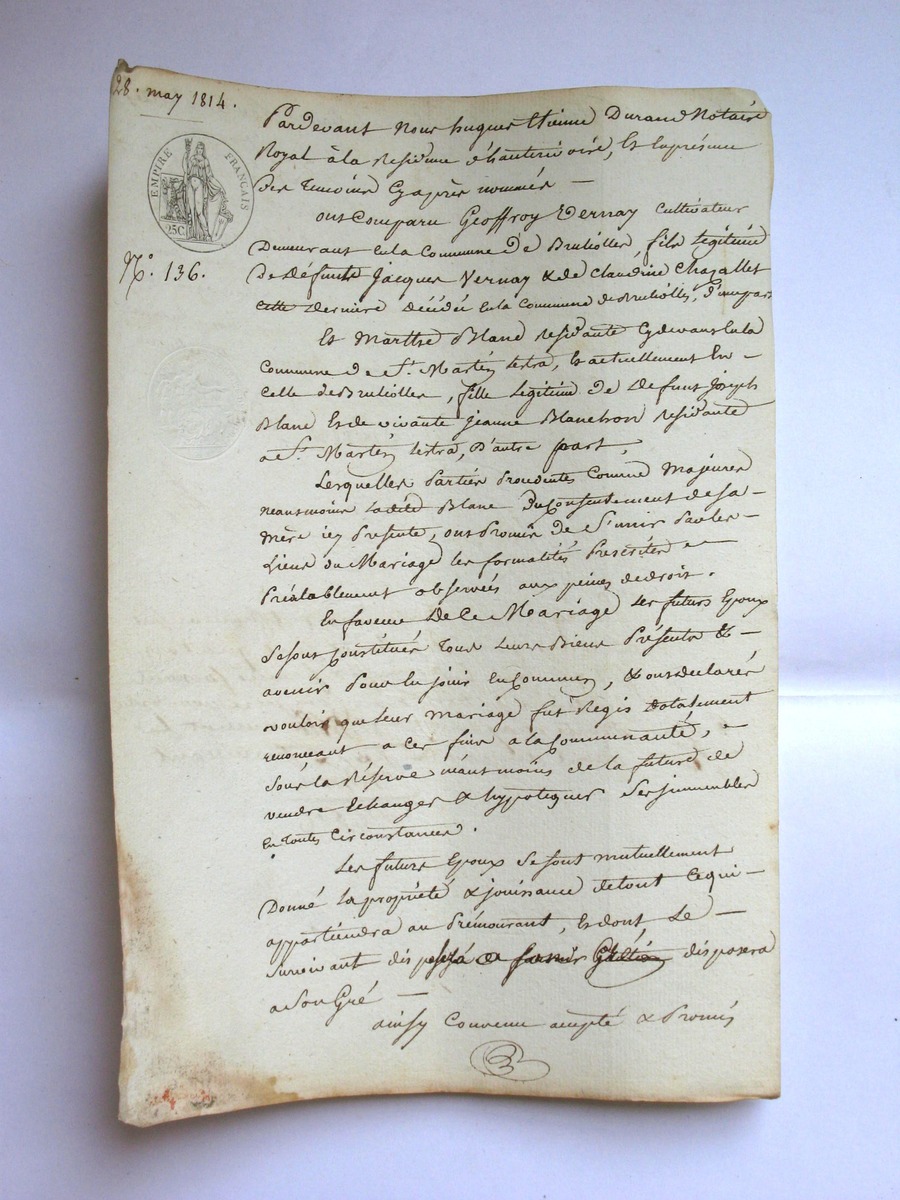 28. may 1814.
EMPIRE FRANÇAIS
25C.
N.º 136.
Pardevant Nous hugues Etienne Durand Notaire
Royal à la Residence d'hauterivoire, Et en présence
Des temoins Cy après nommés —
ont Comparu Geoffroy Vernay Cultivateur
Demeurant en la Commune De Brulioller, fils Legitime
De Défunts Jacques Vernay & de Claudine Chazallet
cette Derniere Décédée en la Commune de Brulioller, d'une part
Et Marthe Blanc residante Cydevant en la
Commune de S.t Martin Lestra, Et actuellement En —
Celle de Brulioller, fille Legitime De Defunt Joseph
Blanc Et de vivante Jeanne Blanchon residante
a S.t Martin Lestra, D'autre part.
Lesquelles Parties Procedantes Comme Majeures
neansmoins Ladite Blanc Du Consentement de Sa —
Mère icy Presente, ont Promis De S'unir Par les —
Liens du Mariage les formalités Prescrites —
Préalablement observées aux peines de droit.
En faveur De Ce Mariage Les futurs Epoux
Se sont Constitués Tous Leurs Biens Présents & —
avenir Pour en jouir En Commun, & ont declarés
vouloir que Leur Mariage fut Regis Dotalement
renonceant a Ces fins à la Communauté, —
Sous la Réserve néantmoins de la future de
vendre Echanger & hypotequer Ses immeubles
En toutes Circonstances.
Les futurs Epoux Se sont mutuellement
Donné la propriété & jouissance de tout Ce qui —
appartiendra au Prémourant, Et dont Le —
Survivant disposera
a Son Gré —
ainsy Convenu accepté & Promis